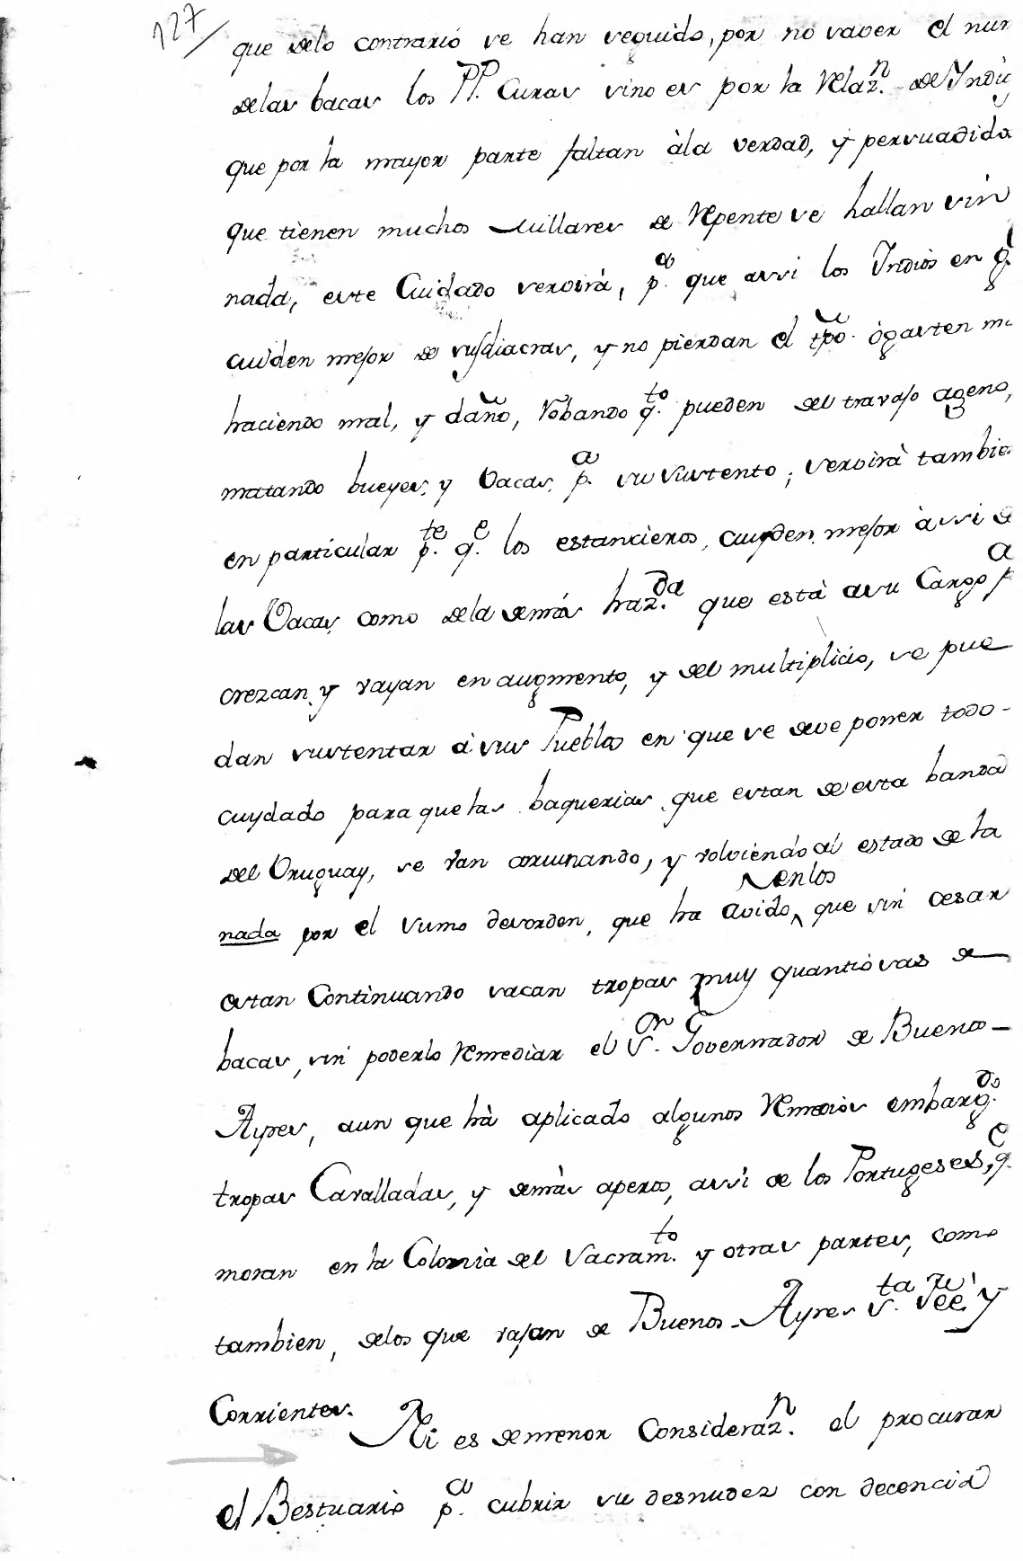 127
que delo contrario se han seguido, por no saver el num
delas bacas los PP. Curas sino es por la Relazn. de Indi
que por la mayor parte faltan àla verdad, y persuadido
que tienen muchos millares de Repente se hallan sin
nada, este Cuidado servirà, pa. que assi los Indios en gl
cuiden mejor de sus diacras, y no pierdan el tpo. ò gasten m
haciendo mal, y daño, Robando qto. pueden del travajo ageno,
matando bueyes, y Vacas, pa. su sustento; servirà tambie
en particular pte. qe. los estancieros, cuyden mejor àssi d
las Vacas, como dela demás hazda. que està asu Cargo pa
crezcan, y vayan en augmento, y del multiplicio, se pue
dan sustentar à sus Pueblos en que se deve poner todo-
cuydado para que las baquerias que estan de esta banda
del Uruguay, se van arruinando, y volviendo al estado de la
nada por el sumo desorden, que ha avido, en los que sin cesar
estan Continuando sacan tropas muy quantiosas de
bacas, sin poderlo Remediar el Sr. Governador de Buenos-
Ayres, aun que hà aplicado algunos Remedios embargdo.
tropas Cavalladas, y demàs aperos, assi de los Portugeses, qe.
moran en la Colonia del Sacramto. y otras partes, como
tambien, delos que vajan de Buenos-Ayres Sta. Fee, y
Corrientes.
Ni es de menor Considerazn. el procurar
el Bestuario pa. cubrir su desnudez con decencia